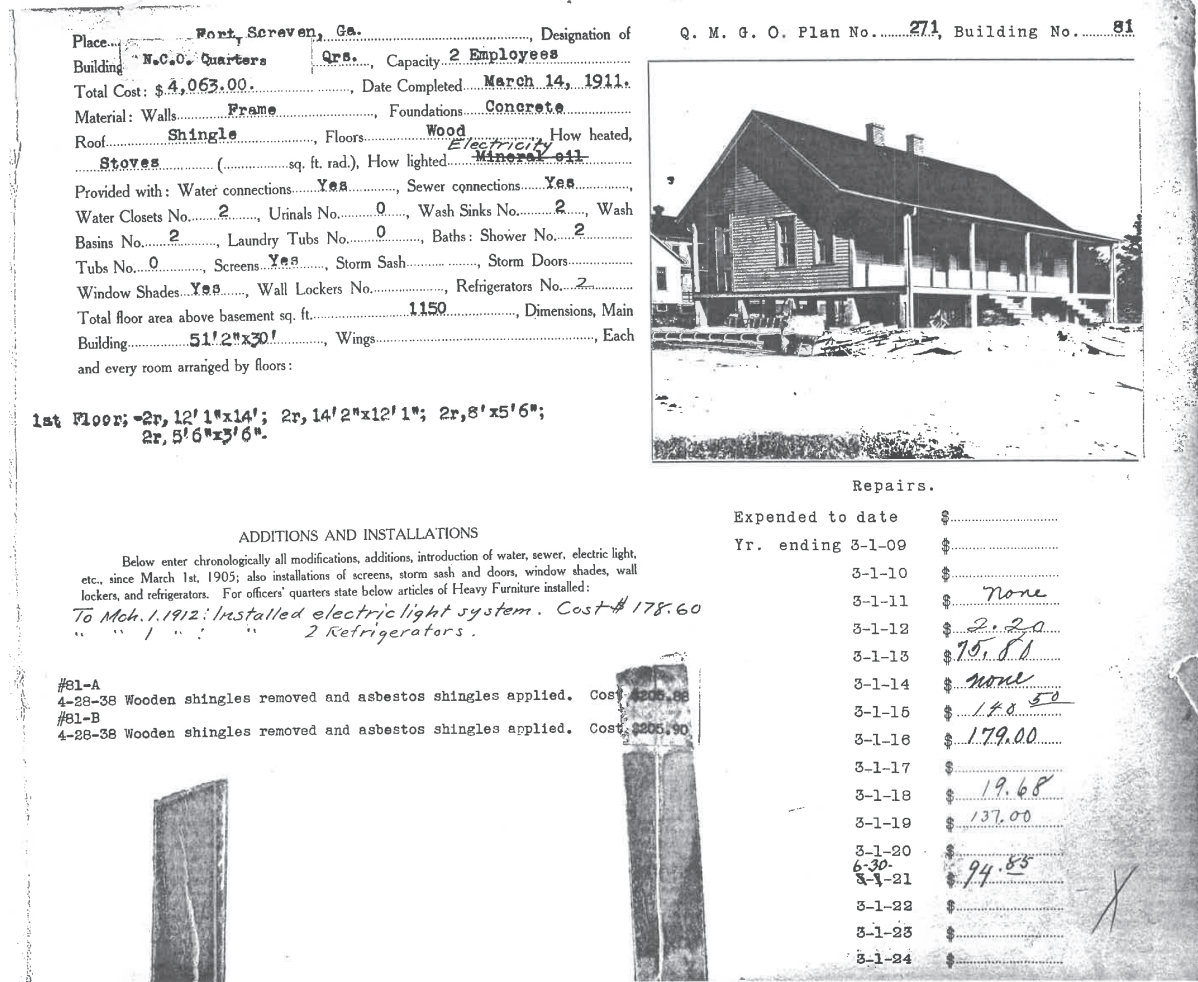 Place Fort, Screven, Ga., Designation of
Building N.C.O. Quarters Qrs., Capacity 2 Employees
Total Cost: $4,063.00., Date Completed March 14, 1911.
Material: Walls Frame, Foundations Concrete
Roof Shingle, Floors Wood, How heated,
Electricity
Stoves ( sq. ft. rad.), How lighted Mineral oil
Provided with: Water connections Yes, Sewer connections Yes,
Water Closets No. 2, Urinals No. 0, Wash Sinks No. 2, Wash
Basins No. 2, Laundry Tubs No. 0, Baths: Shower No. 2
Tubs No. 0, Screens Yes, Storm Sash , Storm Doors
Window Shades Yes, Wall Lockers No. , Refrigerators No. 2
Total floor area above basement sq. ft. 1150, Dimensions, Main
Building 51'2"x30', Wings , Each
and every room arranged by floors:
1st Floor; -2r, 12'1"x14'; 2r, 14'2"x12'1"; 2r, 8'x5'6";
2r, 5'6"x3'6".
Q. M. G. O. Plan No. 271, Building No. 81
ADDITIONS AND INSTALLATIONS
Below enter chronologically all modifications, additions, introduction of water, sewer, electric light,
etc., since March 1st, 1905; also installations of screens, storm sash and doors, window shades, wall
lockers, and refrigerators. For officers' quarters state below articles of Heavy Furniture installed:
To Mch. 1. 1912: Installed electric light system. Cost $ 178.60
" " 1 " : " 2 Refrigerators.
#81-A
4-28-38 Wooden shingles removed and asbestos shingles applied. Cost $205.88
#81-B
4-28-38 Wooden shingles removed and asbestos shingles applied. Cost $205.90
Repairs.
Expended to date $
Yr. ending 3-1-09 $
3-1-10 $
3-1-11 $ none
3-1-12 $ 2.20
3-1-13 $ 75.81
3-1-14 $ none
3-1-15 $ 148 50
3-1-16 $ 179.00
3-1-17 $
3-1-18 $ 19.68
3-1-19 $ 137.00
3-1-20 $
6-30-
3-1-21 $ 94.85
3-1-22 $
3-1-23 $
3-1-24 $